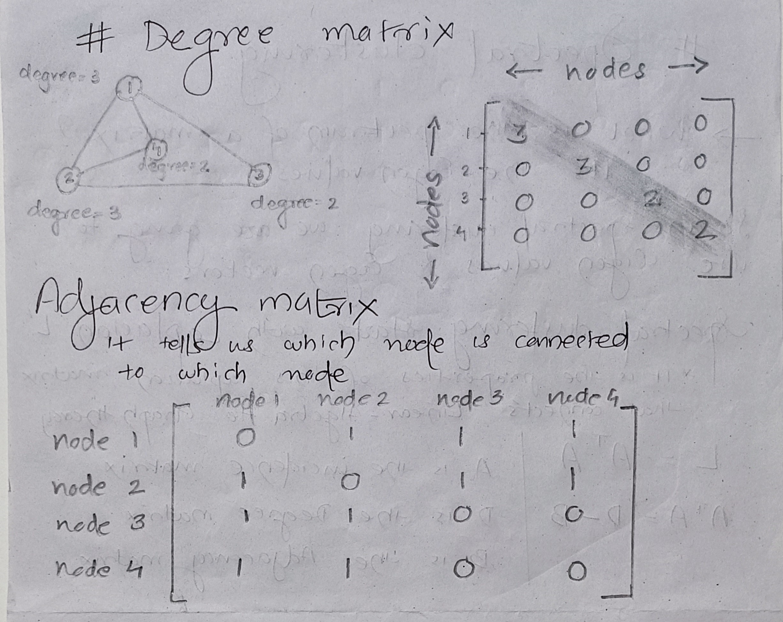 # Degree matrix
degree=3
1
4
degree=2
2
3
degree=3
degree=2
← nodes →
← nodes →
1 3 0 0 0
2 0 3 0 0
3 0 0 2 0
4 0 0 0 2
Adjacency matrix
it tells us which node is connected
to which node
node 1 node 2 node 3 node 4
node 1 0 1 1 1
node 2 1 0 1 1
node 3 1 1 0 0
node 4 1 1 0 0